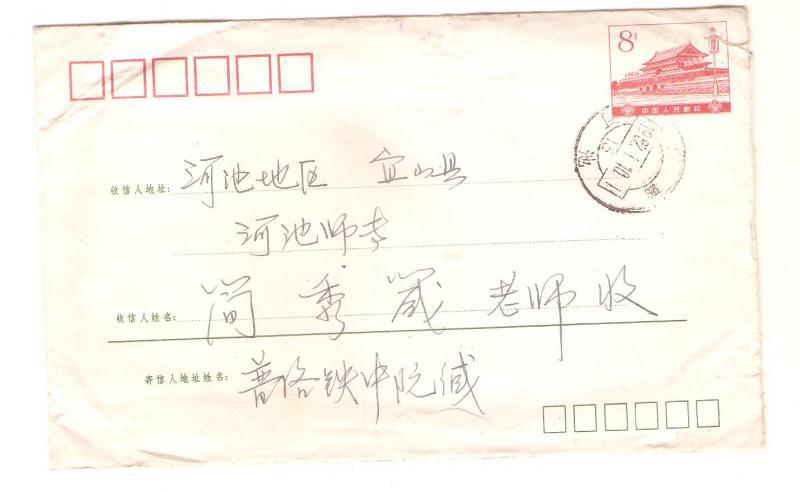 8分
中国人民邮政
收信人地址: 河池地区 宜山县
河池师专
收信人姓名: 简秀箴 老师收
寄信人地址姓名: 普洛铁中院缄